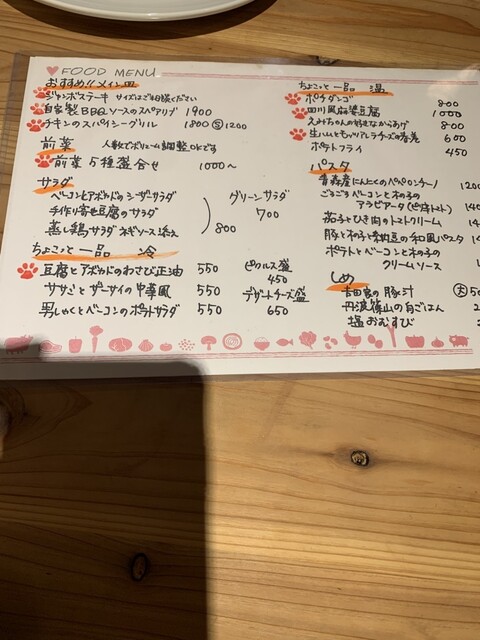 FOOD MENU
おすすめ!! メイン皿
ジャンボステーキ サイズはご相談ください
自家製BBQソースのスペアリブ 1900
チキンのスパイシーグリル 1800 Ⓢ1200
前菜 人数でボリューム調整OKです
前菜5種盛合せ 1000〜
サラダ
ベーコンとアボカドのシーザーサラダ
手作り寄せ豆腐のサラダ
蒸し鶏サラダ ネギソース添え
800
グリーンサラダ
700
ちょこっと一品 冷
豆腐とアボカドのわさび正油 550
ササミとザーサイの中華風 550
男しゃくとベーコンのポテトサラダ 550
ピクルス盛
450
デザートチーズ盛
650
ちょこっと一品 温
ポチダンゴ 800
四川風麻婆豆腐 1000
えみちゃんの好きなからあげ 800
生ハムともっツァレラチーズの春巻 600
ポテトフライ 450
パスタ
青森産にんにくのペペロンチーノ 1200
ごろごろベーコンと木の子の
アラビアータ
茄子とひき肉のトマトクリーム
豚と木の子の和風パスタ
ポテトとベーコンと木の子の
クリームソース
しめ
吉田家の豚汁 大
丹波篠山の白ごはん
塩おむすび